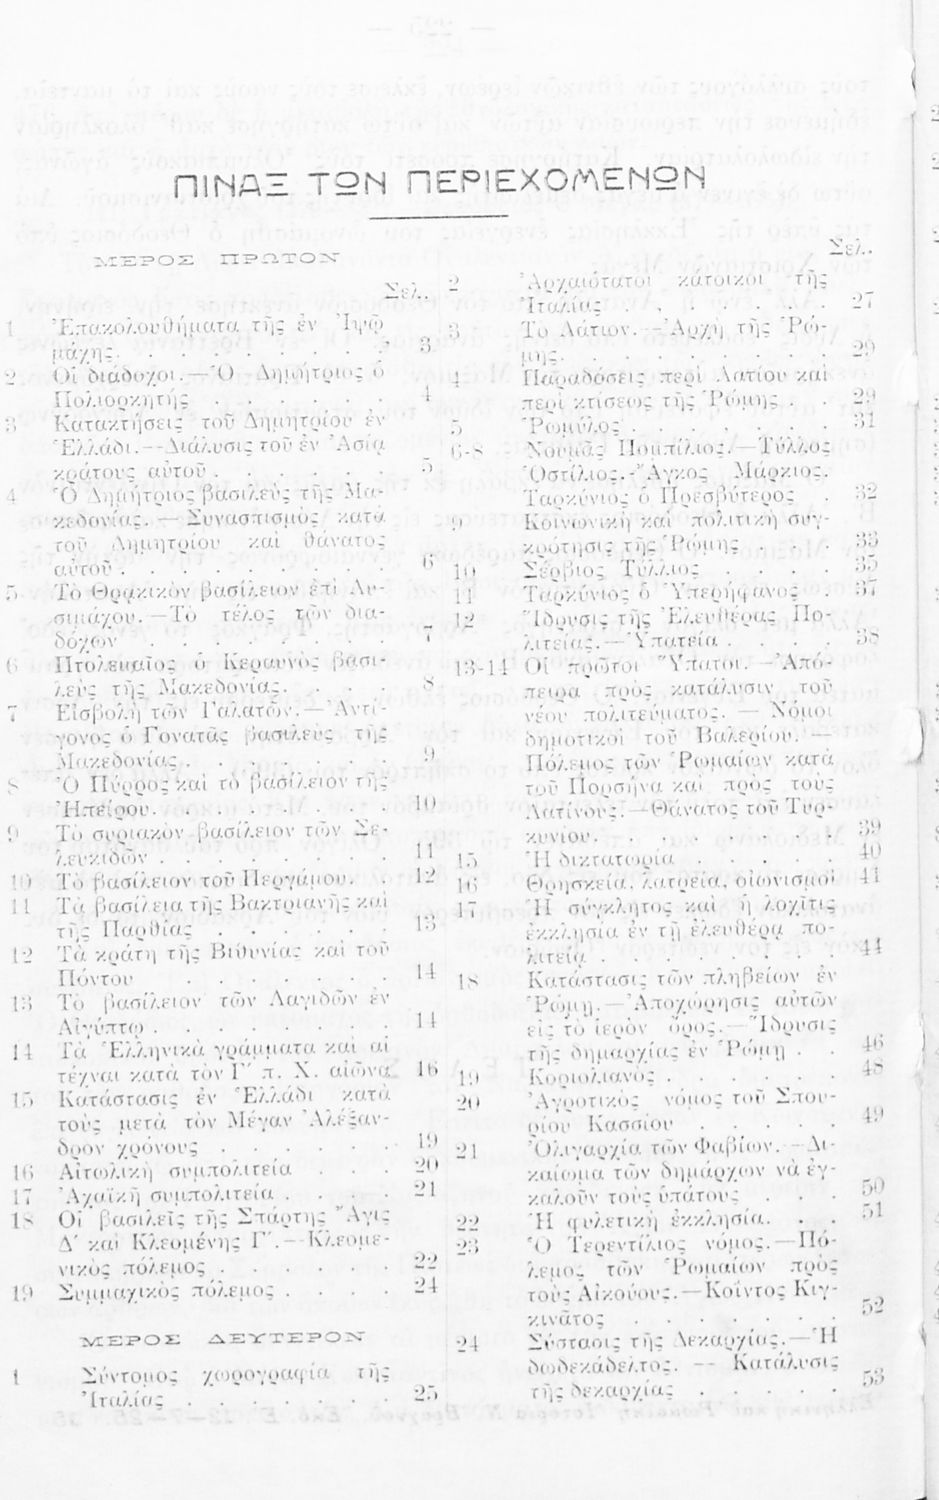 ΠΙΝΑΞ ΤΩΝ ΠΕΡΙΕΧΟΜΕΝΩΝ
ΜΕΡΟΣ ΠΡΩΤΟΝ
Σελ.
1 Ἐπακολουθήματα τῆς ἐν Ἰψῷ
μάχης. . . . . . . . 3
2 Οἱ διάδοχοι.—Ὁ Δημήτριος ὁ
Πολιορκητής . . . . . . 4
3 Κατακτήσεις τοῦ Δημητρίου ἐν
Ἑλλάδι.—Διάλυσις τοῦ ἐν Ἀσίᾳ
κράτους αὐτοῦ . . . . . . 5
4 Ὁ Δημήτριος βασιλεὺς τῆς Μα-
κεδονίας. — Συνασπισμὸς κατὰ
τοῦ Δημητρίου καὶ θάνατος
αὐτοῦ . . . . . . . . 6
5 Τὸ Θρακικὸν βασίλειον ἐπὶ Λυ-
σιμάχου.—Τὸ τέλος τῶν δια-
δόχων . . . . . . . . 7
6 Πτολεμαῖος ὁ Κεραυνὸς βασι-
λεὺς τῆς Μακεδονίας. . . . . 8
7 Εἰσβολὴ τῶν Γαλατῶν. — Ἀντί-
γονος ὁ Γονατᾶς βασιλεὺς τῆς
Μακεδονίας . . . . . . . 9
8 Ὁ Πύρρος καὶ τὸ βασίλειον τῆς
Ἠπείρου . . . . . . . 10
9 Τὸ συριακὸν βασίλειον τῶν Σε-
λευκιδῶν . . . . . . . 11
10 Τὸ βασίλειον τοῦ Περγάμου. . 12
11 Τὰ βασίλεια τῆς Βακτριανῆς καὶ
τῆς Παρθίας . . . . . . 13
12 Τὰ κράτη τῆς Βιθυνίας καὶ τοῦ
Πόντου . . . . . . . 14
13 Τὸ βασίλειον τῶν Λαγιδῶν ἐν
Αἰγύπτῳ . . . . . . . 14
14 Τὰ Ἑλληνικὰ γράμματα καὶ αἱ
τέχναι κατὰ τὸν Γ΄ π. Χ. αἰῶνα 16
15 Κατάστασις ἐν Ἑλλάδι κατὰ
τοὺς μετὰ τὸν Μέγαν Ἀλέξαν-
δρον χρόνους . . . . . . 19
16 Αἰτωλικὴ συμπολιτεία . . . 20
17 Ἀχαϊκὴ συμπολιτεία . . . . 21
18 Οἱ βασιλεῖς τῆς Σπάρτης Ἆγις
Δ΄ καὶ Κλεομένης Γ΄.—Κλεομε-
νικὸς πόλεμος . . . . . . 22
19 Συμμαχικὸς πόλεμος . . . . 24
ΜΕΡΟΣ ΔΕΥΤΕΡΟΝ
1 Σύντομος χωρογραφία τῆς
Ἰταλίας . . . . . . . 25
Σελ.
2 Ἀρχαιότατοι κάτοικοι τῆς
Ἰταλίας . . . . . . . 27
3 Τὸ Λάτιον.—Ἀρχὴ τῆς Ῥώ-
μης. . . . . . . . . 29
4 Παραδόσεις περὶ Λατίου καὶ
περὶ κτίσεως τῆς Ῥώμης . . 29
5 Ῥωμύλος . . . . . . . 31
6-8 Νουμᾶς Πομπίλιος.—Τύλλος
Ὁστίλιος.-Ἄγκος Μάρκιος.
Ταρκύνιος ὁ Πρεσβύτερος . 32
9 Κοινωνικὴ καὶ πολιτικὴ συγ-
κρότησις τῆς Ῥώμης . . . 33
10 Σέρβιος Τύλλιος . . . . 35
11 Ταρκύνιος ὁ Ὑπερήφανος . 37
12 Ἵδρυσις τῆς Ἐλευθέρας Πο-
λιτείας.—Ὑπατεία . . . . 38
13-14 Οἱ πρῶτοι Ὕπατοι.—Ἀπό-
πειρα πρὸς κατάλυσιν τοῦ
νέου πολιτεύματος. — Νόμοι
δημοτικοὶ τοῦ Βαλερίου.—
Πόλεμος τῶν Ῥωμαίων κατὰ
τοῦ Πορσήνα καὶ πρὸς τοὺς
Λατίνους.—Θάνατος τοῦ Ταρ
κυνίου . . . . . . . . 39
15 Ἡ δικτατωρία . . . . . 40
16 Θρησκεία, λατρεία, οἰωνισμοὶ 41
17 Ἡ σύγκλητος καὶ ἡ λοχῖτις
ἐκκλησία ἐν τῇ ἐλευθέρᾳ πο-
λιτείᾳ . . . . . . . . 44
18 Κατάστασις τῶν πληβείων ἐν
Ῥώμῃ.—Ἀποχώρησις αὐτῶν
εἰς τὸ ἱερὸν ὄρος.—Ἵδρυσις
τῆς δημαρχίας ἐν Ῥώμῃ . . 46
19 Κοριολιανὸς . . . . . . 48
20 Ἀγροτικὸς νόμος τοῦ Σπου-
ρίου Κασσίου . . . . . . 49
21 Ὀλιγαρχία τῶν Φαβίων.—Δι-
καίωμα τῶν δημάρχων νὰ ἐγ-
καλοῦν τοὺς ὑπάτους . . . 50
22 Ἡ φυλετικὴ ἐκκλησία. . . 51
23 Ὁ Τερεντίλιος νόμος.—Πό-
λεμος τῶν Ῥωμαίων πρὸς
τοὺς Αἰκούους.—Κοΐντος Κιγ-
κινᾶτος . . . . . . . 52
24 Σύστασις τῆς Δεκαρχίας.—Ἡ
δωδεκάδελτος. — Κατάλυσις
τῆς δεκαρχίας . . . . . 53